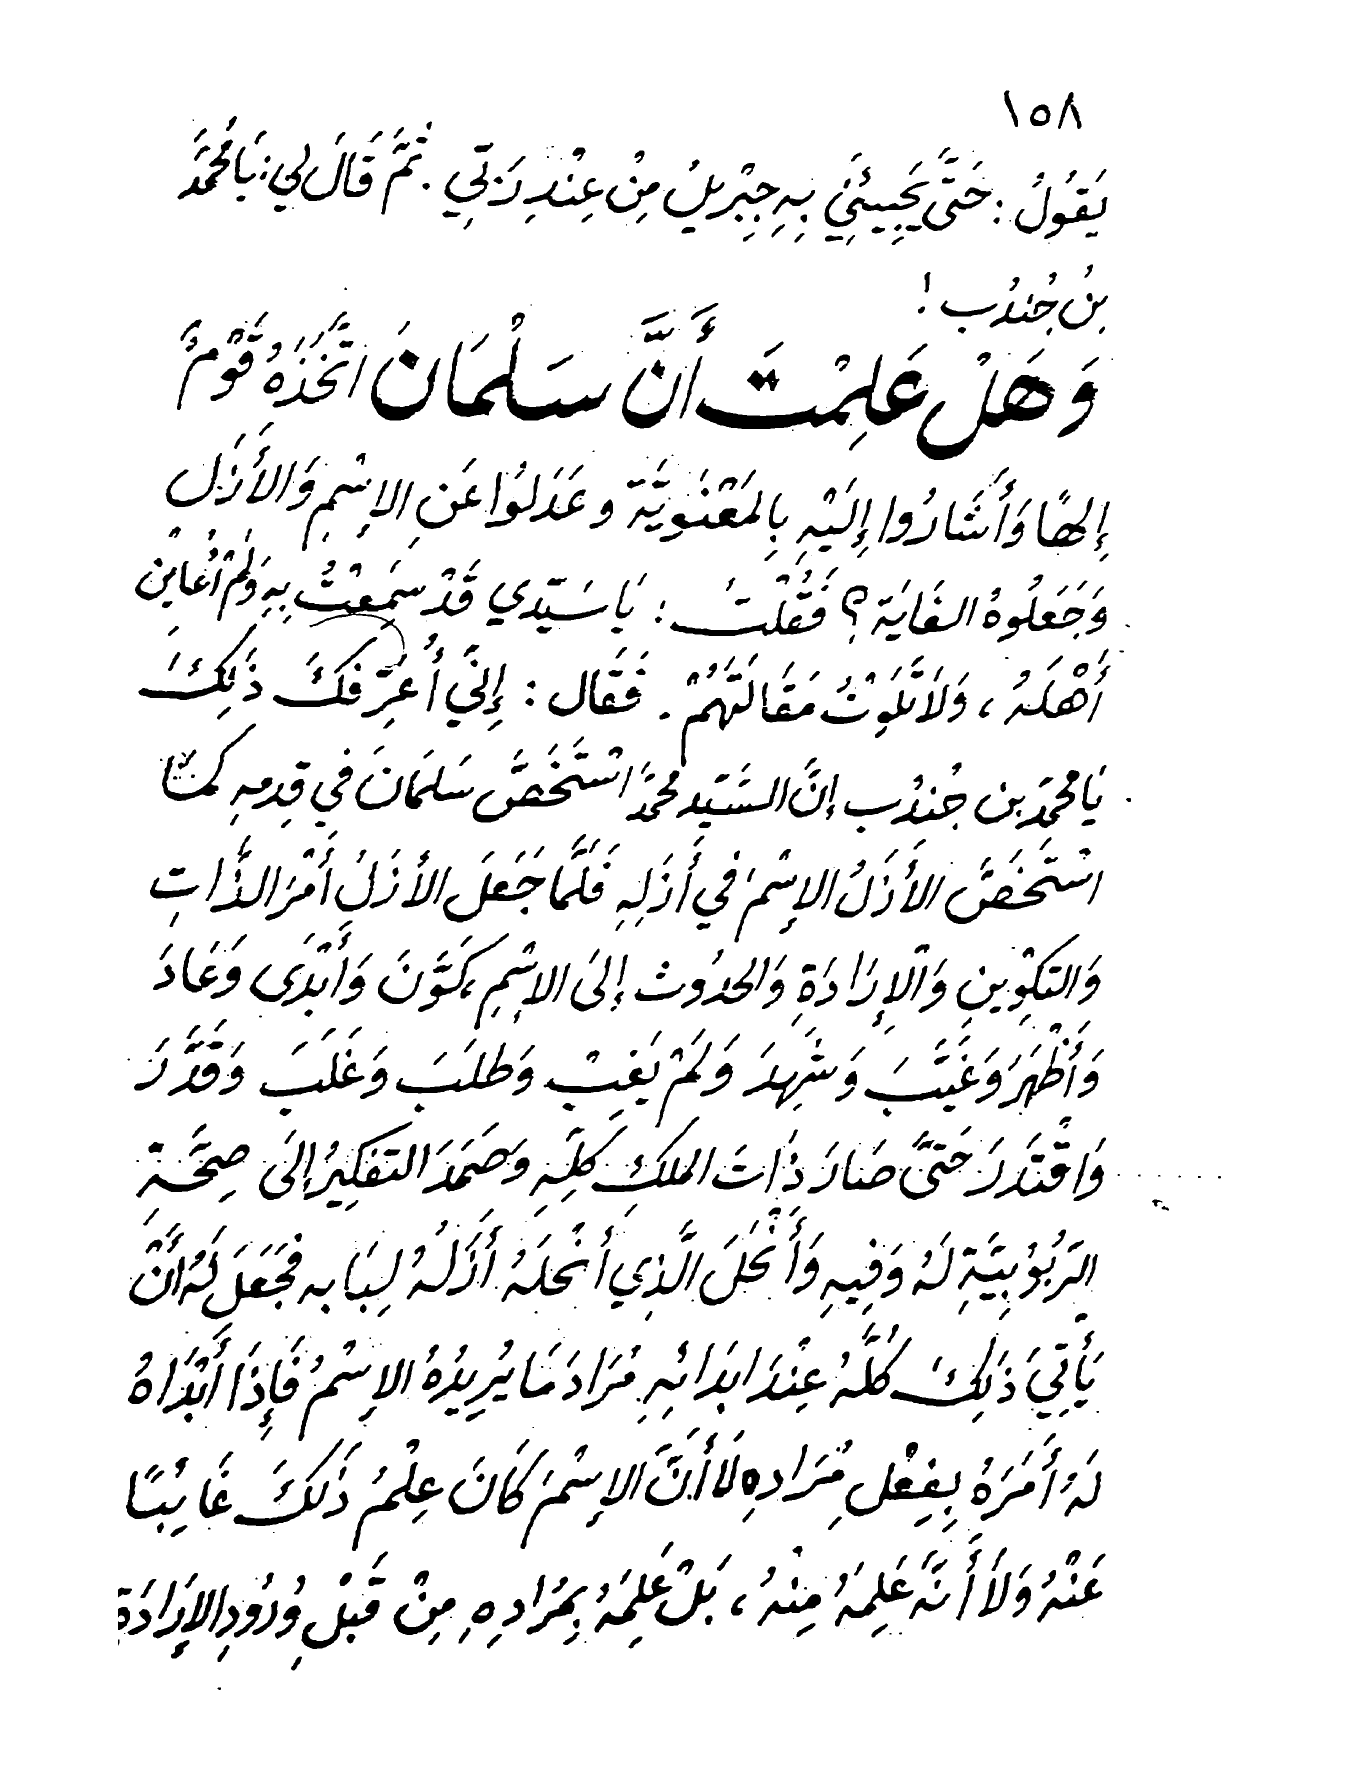 ١٥٨
يَقُولُ : حَتَّى يَجِيئَنِي بِهِ جِبْرِيلُ مِنْ عِنْدِ رَبِّي . ثُمَّ قَالَ لِي : يَا مُحَمَّدَ
بِنُ جُندُب !
وَهَلْ عَلِمْتَ أَنَّ سَلْمَانَ اتَّخَذَهُ قَوْمٌ
إِلهًا وَأَشَارُوا إِلَيْهِ بِالمَعْنَوِيَّةِ وعَدَلُوا عَنِ الإِسْمِ وَالأَزَلِ
وَجَعَلُوهُ الغَايَةَ ؟ فَقُلْتُ : يَا سَيِّدِي قَدْ سَمِعْتُ بِهِ وَلَمْ أُعَايِنْ
أَهْلَهُ ، وَلاَ تَلَوْتُ مَقَالَتَهُمْ . فَقَال : إِنِّي أُعَرِّفُكَ ذَلِكَ
يَا مُحَمَّدَ بن جُندُب إِنَّ السَّيِّد مُحَمَّدًا اسْتَخَصَّ سَلمَانَ في قِدمِهِ كمَا
اسْتَخَصَّ الأَزَلُ الإِسْمَ في أَزَلِهِ فَلَمَّا جَعَلَ الأَزَلُ أَمْرَ الذَّاتِ
وَالتكْوِينِ وَالإِرَادَةِ وَالحدُوث إِلىَ الإِسْمِ ، كَوَّنَ وَأَبْدَى وَعَادَ
وَأَظْهَرَ وَغَيَّبَ وَشَهِدَ وَلَمْ يَغِبْ وَطلَبَ وَغَلَبَ وَقَدَّرَ
وَاقْتَدَرَ حَتَّى صَارَ ذَاتَ الملكِ كلِّهِ وَصَمَدَ التفكِيرُ إِلىَ صِحَّةِ
الرَّبُوبِيَّةِ لَهُ وَفِيهِ وَأَنْحَلَ الَّذِي أَنْحَلَهُ أَزَلُهُ لِبَابِهِ فَجَعَلَ لَهُ أَنْ
يَأْتِيَ ذَلِكَ كُلَّهُ عِنْدَ ابدَائِهِ مُرَادَ مَا يُرِيدُهُ الإِسْمُ فَإِذَا أَبْدَاهُ
لَهُ أَمَرَهُ بِفِعْلِ مُرَادِهِ لَا أَنَّ الإِسْمَ كَانَ عِلْمُ ذَلكَ غَائِبًا
عَنْهُ وَلاَ أَنَّهُ عَلِمَهُ مِنْهُ ، بَلْ عَلِمَهُ بِمُرَادِهِ مِنْ قَبْلِ وُرُودِ الإِرَادَةِ